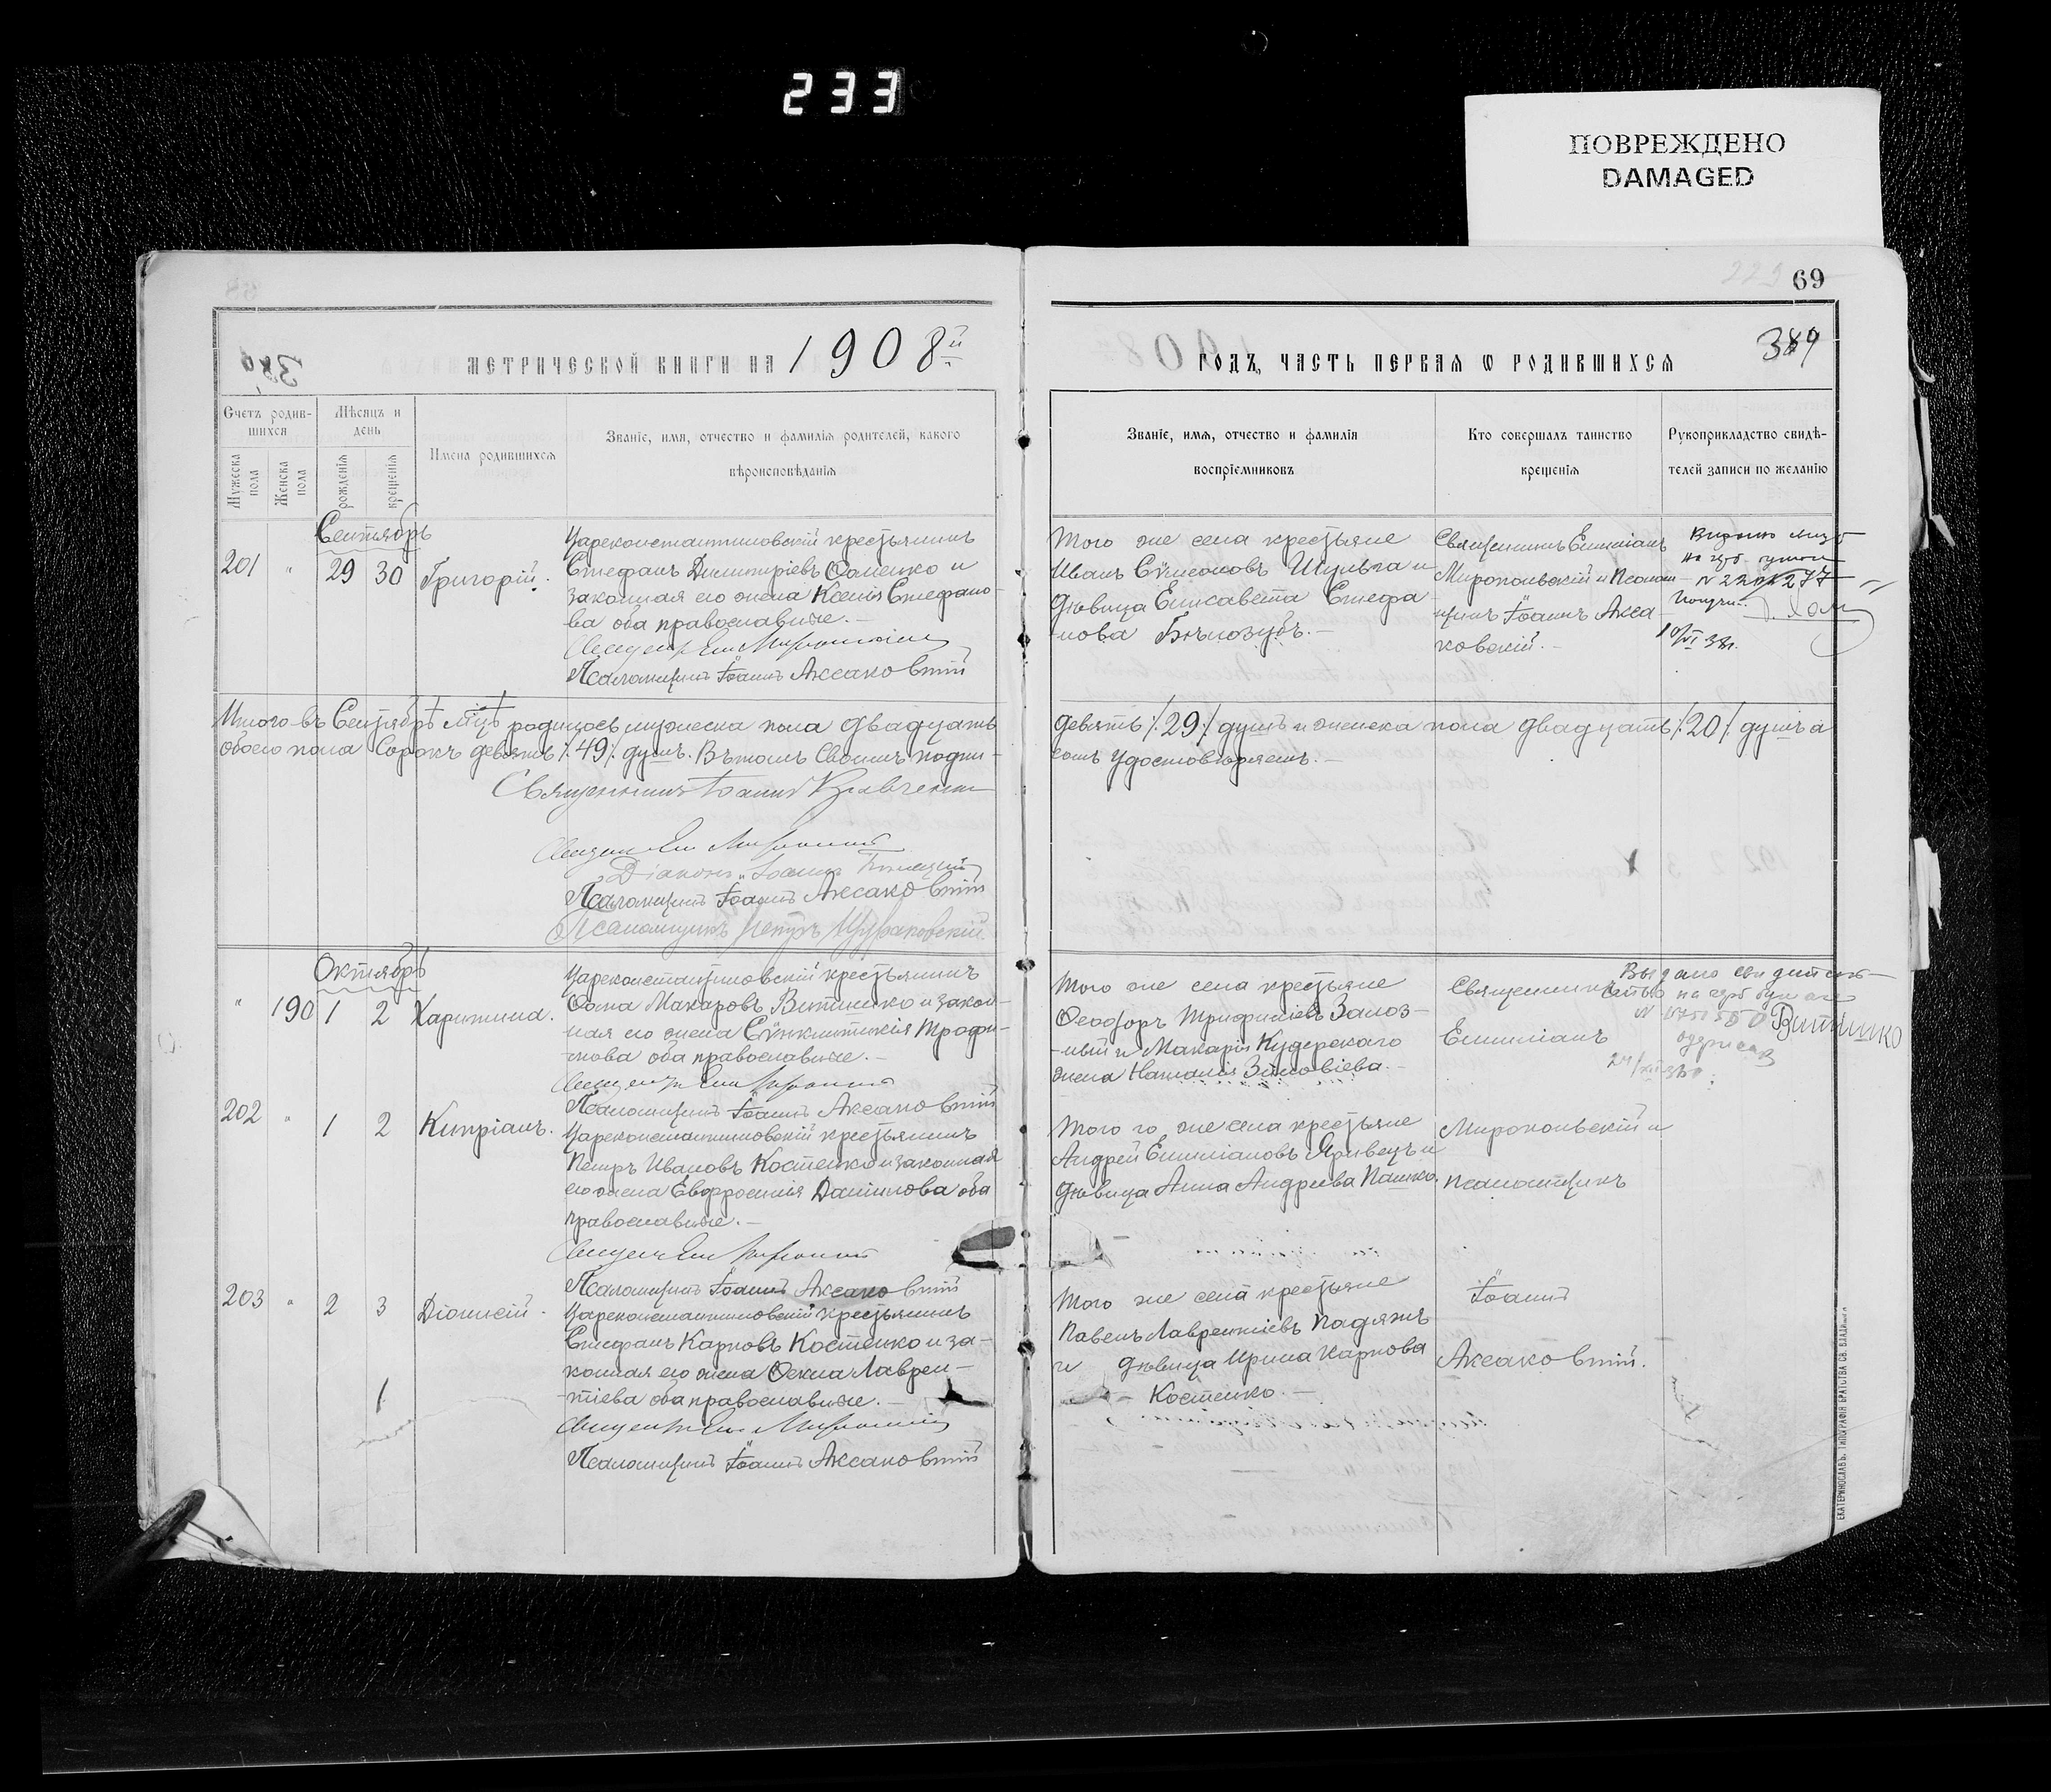 233
ПОВРЕЖДЕНО
DAMAGED
69
389
МЕТРИЧЕСКОЙ КНИГИ НА 1908й
ГОДЪ, ЧАСТЬ ПЕРВАЯ Ѡ РОДИВШИХСЯ
Счетъ родив-
шихся
Мѣсяцъ и
день
Мужеска
пола
Женска
пола
рожденія
крещенія
Имена родившихся
Званіе, имя, отчество и фамилія родителей, какого
вѣроисповѣданія
Званіе, имя, отчество и фамилія
воспріемниковъ
Кто совершалъ таинство
крещенія
Рукоприкладство свидѣ-
телей записи по желанію
Сентябрь
201 " 29 30 Григорій.
Цареконстантиновскій крестьянинъ
Стефанъ Димитріевъ Фоменко и
законная его жена Ксенія Стефано-
ва оба православные.-
Псаломщикъ Іоаннъ Аксаковскій
Того же села крестьяне
Иванъ Сѵмеоновъ Шульга и
дѣвица Елисавета Стефа
нова Бѣлозубъ.-
Священникъ Емиліанъ
Миропольскій и Псалом-
щикъ Іоаннъ Акса
ковскій.-
10/VI 38г.
Итого въ Сентябрѣ м-цѣ родилось мужеска пола двадцать
обоего пола Сорокъ девять /:49:/ душъ. Въ томъ Своимъ подпи-
девять /:29:/ душъ и женска пола двадцать /:20:/ душъ а
сомъ удостовѣряемъ.-
Священникъ Іоаннъ Кравченко
Діаконъ Іоаннъ
Псаломщикъ Іоаннъ Аксаковскій
Псаломщикъ Петръ
Октябрь
" 190 1 2 Харитина.
Цареконстантиновскій крестьянинъ
Фома Макаровъ Витненко и закон-
ная его жена Сѵнклитикія Трофи-
мова оба православные.-
Псаломщикъ Іоаннъ Аксаковскій
Того же села крестьяне
Феодоръ Трифиліевъ Залоз-
ный и Макарія Кудерскаго
жена Наталія Зиновіева.
Священникъ
Емиліанъ
Выдано свидетель-
202 " 1 2 Кипріанъ.
Цареконстантиновскій крестьянинъ
Петръ Ивановъ Костенко и законная
его жена Евфросинія Даніилова оба
православные.-
Псаломщикъ Іоаннъ Аксаковскій
Того го же села крестьяне
Андрей Емиліановъ Яривецъ и
дѣвица Анна Андреева Пашко.
Миропольскій и
псаломщикъ
203 " 2 3 Діонисій.
Цареконстантиновскій крестьянинъ
Стефанъ Карповъ Костенко и за-
конная его жена Фекла Лаврен-
тіева оба православные.-
Псаломщикъ Іоаннъ Аксаковскій
Того же села крестьяне
Павелъ Лаврентіевъ Падяжъ
и дѣвица Ирина Карпова
Костенко.-
Іоаннъ
Аксаковскій.
ЕКАТЕРИНОСЛАВЪ. ТИПОГРАФІЯ БРАТСТВА СВ. ВЛАДИМИ